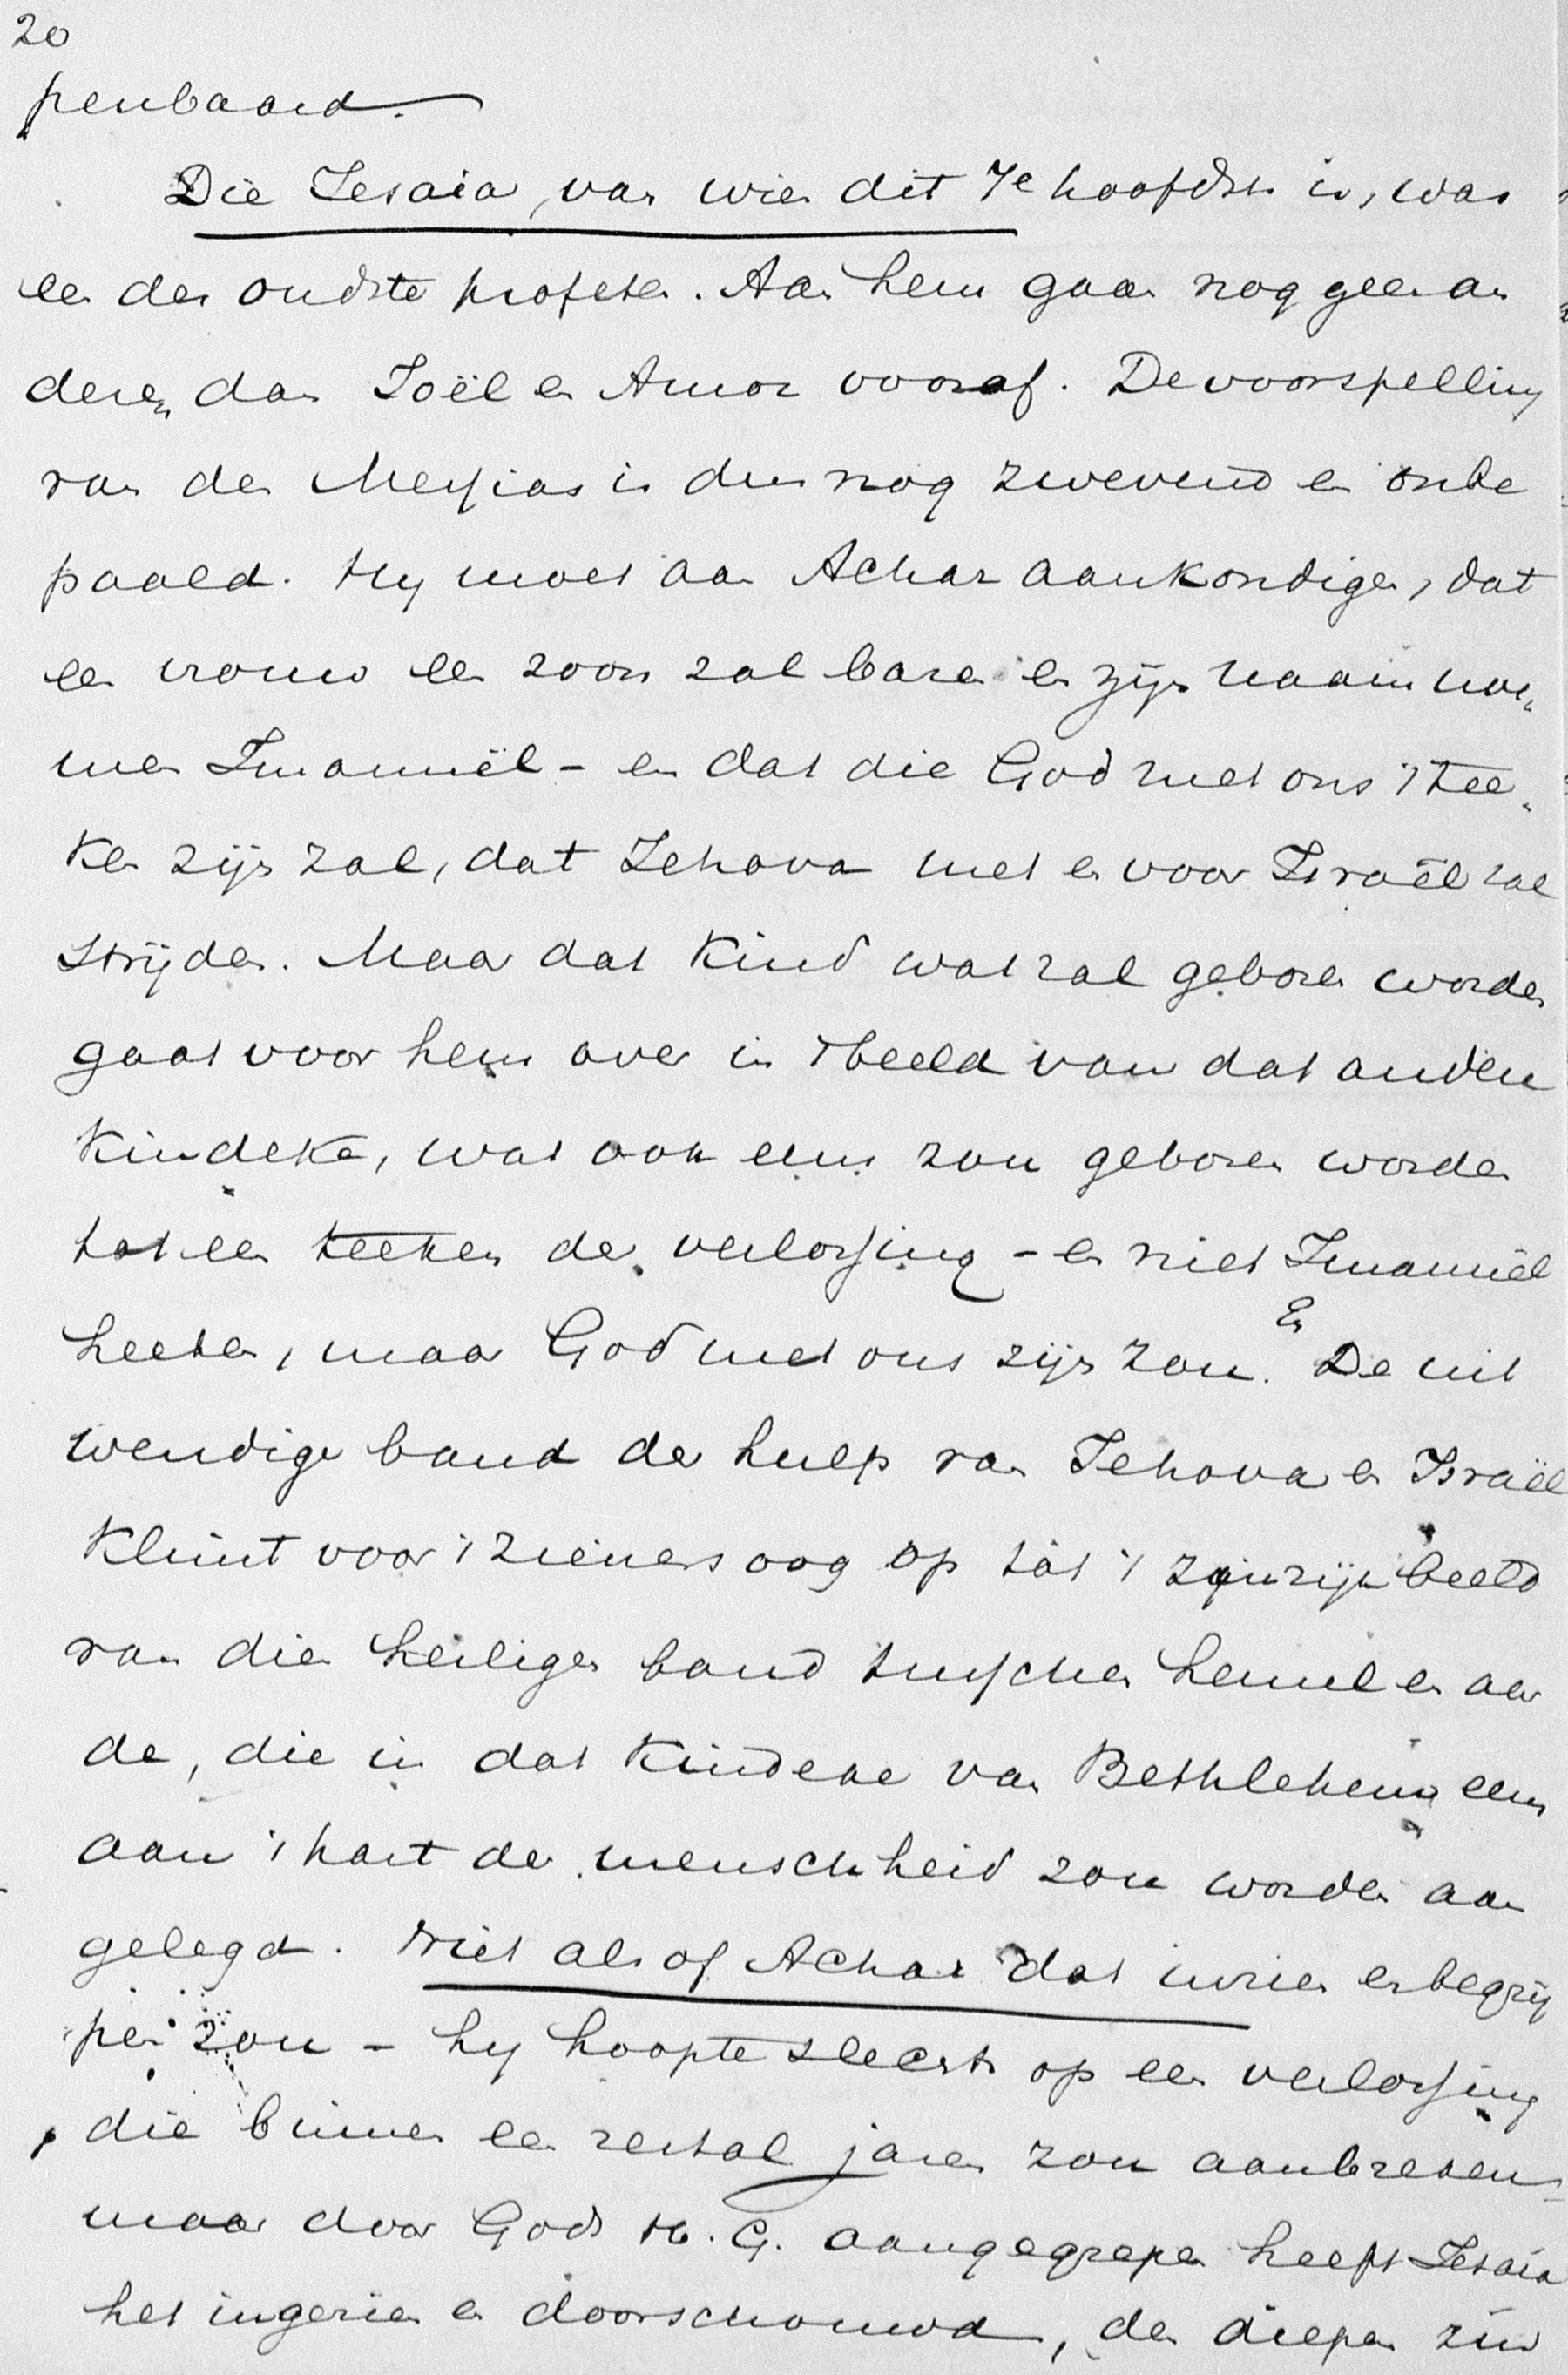 20
penbaard.
Die Jesaia, van wien dit 7e hoofdst. is, was
een der oudste profeten. Aan hem gaan nog geen an
deren dan Joël en Amoz vooraf. De voorspelling
van den Messias is dus nog zwevend en onbe
paald. Hy moet aan Achaz aankondigen, dat
een vrouw een zoon zal baren en zijn naam noe„
men Imanuël - en dat die God met ons 't tee„
ken zijn zal, dat Jehova met en voor Israël zal
strijden. Maar dat kind wat zal geboren worden
gaat voor hem over in 't beeld van dat andere
kindeke, wat ook eens zou geboren worden
tot een teeken der verlossing - en niet Imanuël
heeten, maar God met ons zijn zou. En De uit
wendige band der hulp van Jehova en Israël
klimt voor 's zieners oog op tot 't zijn beeld
van dien heiligen band tusschen hemel en aar
de, die in dat kindeke van Bethlehem eens
aan 't hart der menschheid zou worden aan
gelegd. Niet alsof Achaz dat inzien en begrij
pen zou - hy hoopte slechts op een verlossing
die binnen een zestal jaren zou aanbreken -
maar door Gods H. G. aangegrepen heeft Jesaia
het ingezien en doorschouwd, den diepen zin